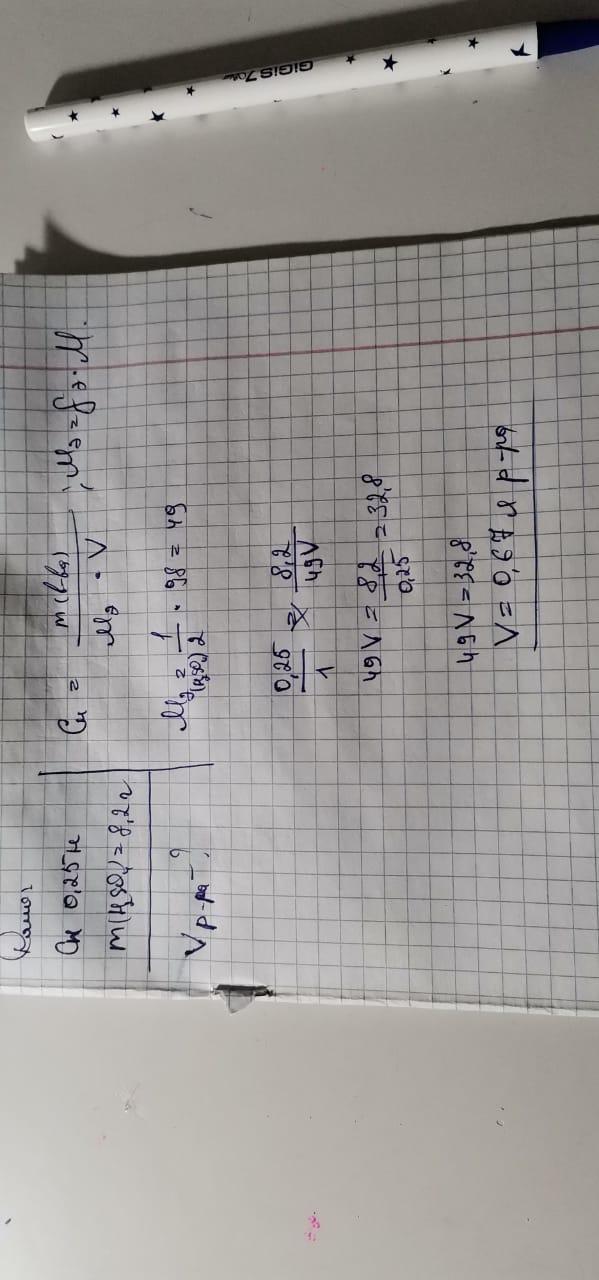 GIGIS 7
Дано:
Cн 0,25 н
m(H₂SO₄) = 8,2 г
V р-ра - ?
Cн = m(в-ва) / Mэ · V ; Mэ = fэ · M.
Mэ(H₂SO₄) = 1/2 · 98 = 49
0,25/1 = 8,2/49V
49V = 8,2/0,25 = 32,8
49V = 32,8
V = 0,67 л р-ра